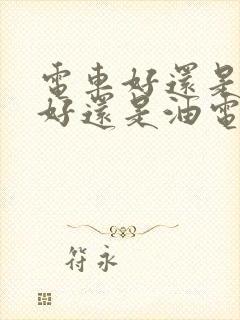 電車好還是
好還是油電
符永